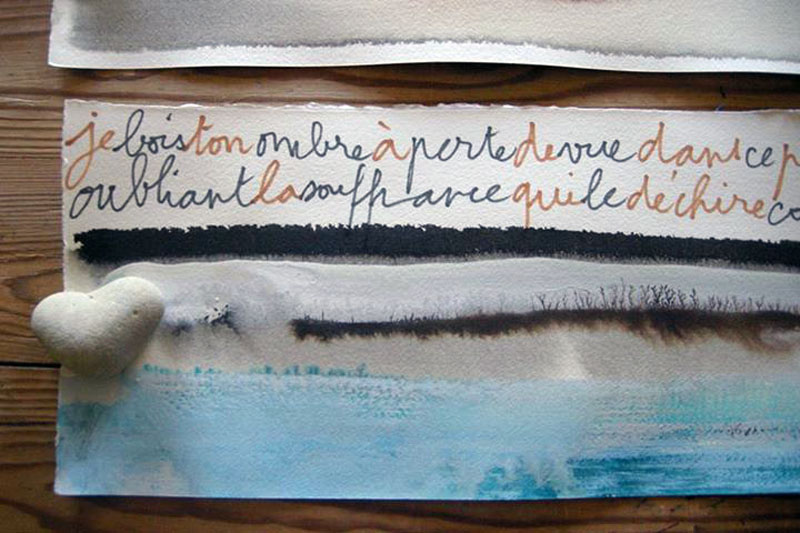 je bois ton ombre à perte de vue dans ce p
oubliant la souffrance qui le déchire co